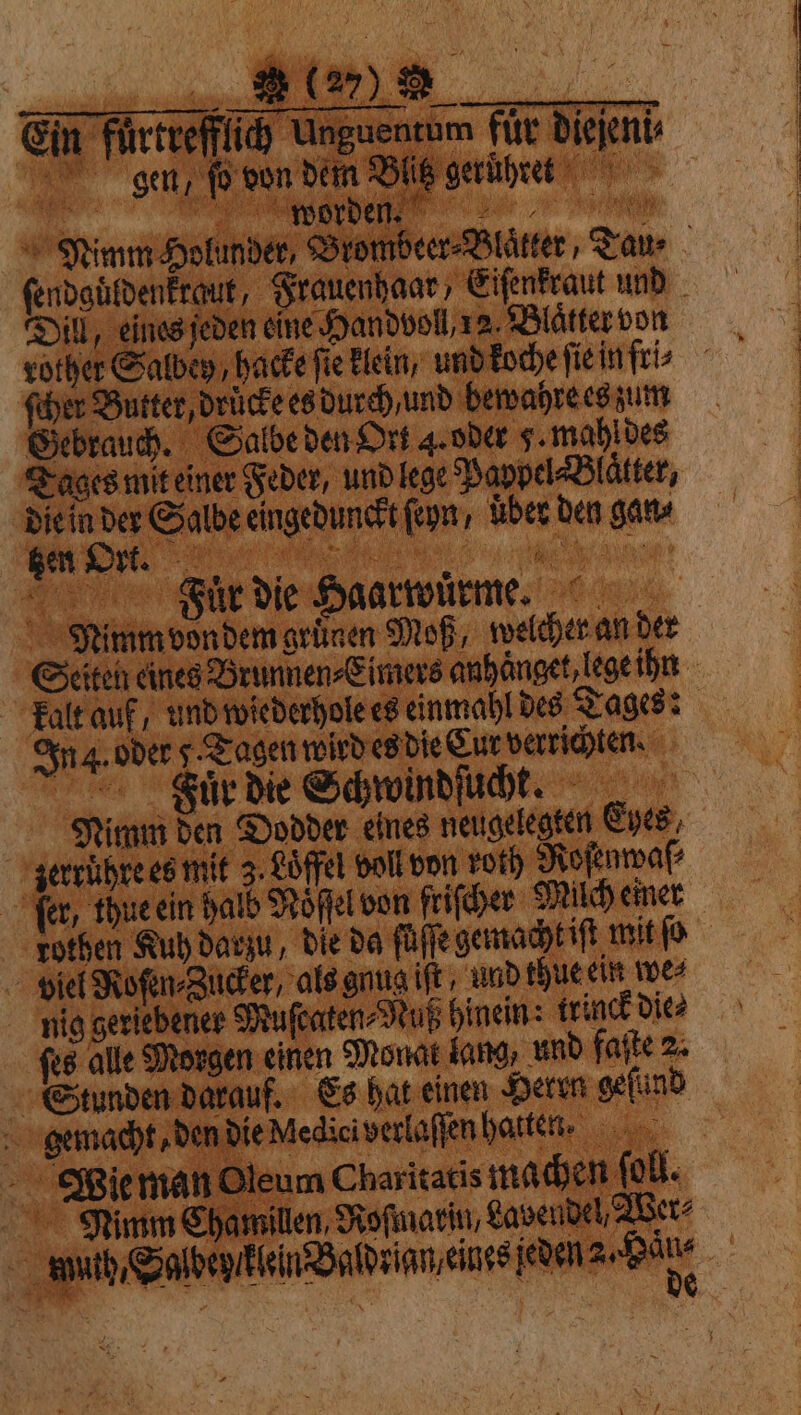 (27)
Ein fuͤrtrefflich Unguentum fuͤr diejeni⸗
gen, ſo von dem Blitz geruͤhret
worden.
Nimm Holunder, Brombeer⸗Blaͤtter, Tau⸗
ſendguͤldenkraut, Frauenhaar, Eiſenkraut und
Dill, eines jeden eine Handvoll, 12. Blaͤtter von
rother Salbey, hacke ſie klein, und koche ſie in fri⸗
ſcher Butter, druͤcke es durch, und bewahre es zum
Gebrauch. Salbe den Ort 4. oder 5. mahl des
Tages mit einer Feder, und lege Pappel⸗Blaͤtter,
die in der Salbe eingedunckt ſeyn, uͤber den gan⸗
tzen Ort.
Fuͤr die Haarwuͤrme.
Nimm von dem gruͤnen Moß, welcher an der
Seiten eines Brunnen⸗Eimers anhaͤnget, lege ihn
kalt auf, und wiederhole es einmahl des Tages:
In 4. oder 5. Tagen wird es die Cur verrichten.
Fuͤr die Schwindſucht.
Nimm den Dodder eines neugelegten Eyes,
zerruͤhre es mit 3. Loͤffel voll von roth Roſenwaſ⸗
ſer, thue ein halb Noͤſſel von friſcher Milch einer
rothen Kuh darzu, die da ſuͤſſe gemacht iſt mit ſo
viel Roſen⸗Zucker, als gnug iſt, und thue ein we⸗
nig geriebener Muſcaten⸗Nuß hinein: trinck die⸗
ſes alle Morgen einen Monat lang, und faſte 2.
Stunden darauf. Es hat einen Herrn geſund
gemacht, den die Medici verlaſſen hatten.
Wie man Oleum Charitatis machen ſoll.
Nimm Chamillen, Roſmarin, Lavendel, Wer⸗
muth, Salbey, klein Baldrian, eines jeden 2. Haͤn⸗
de